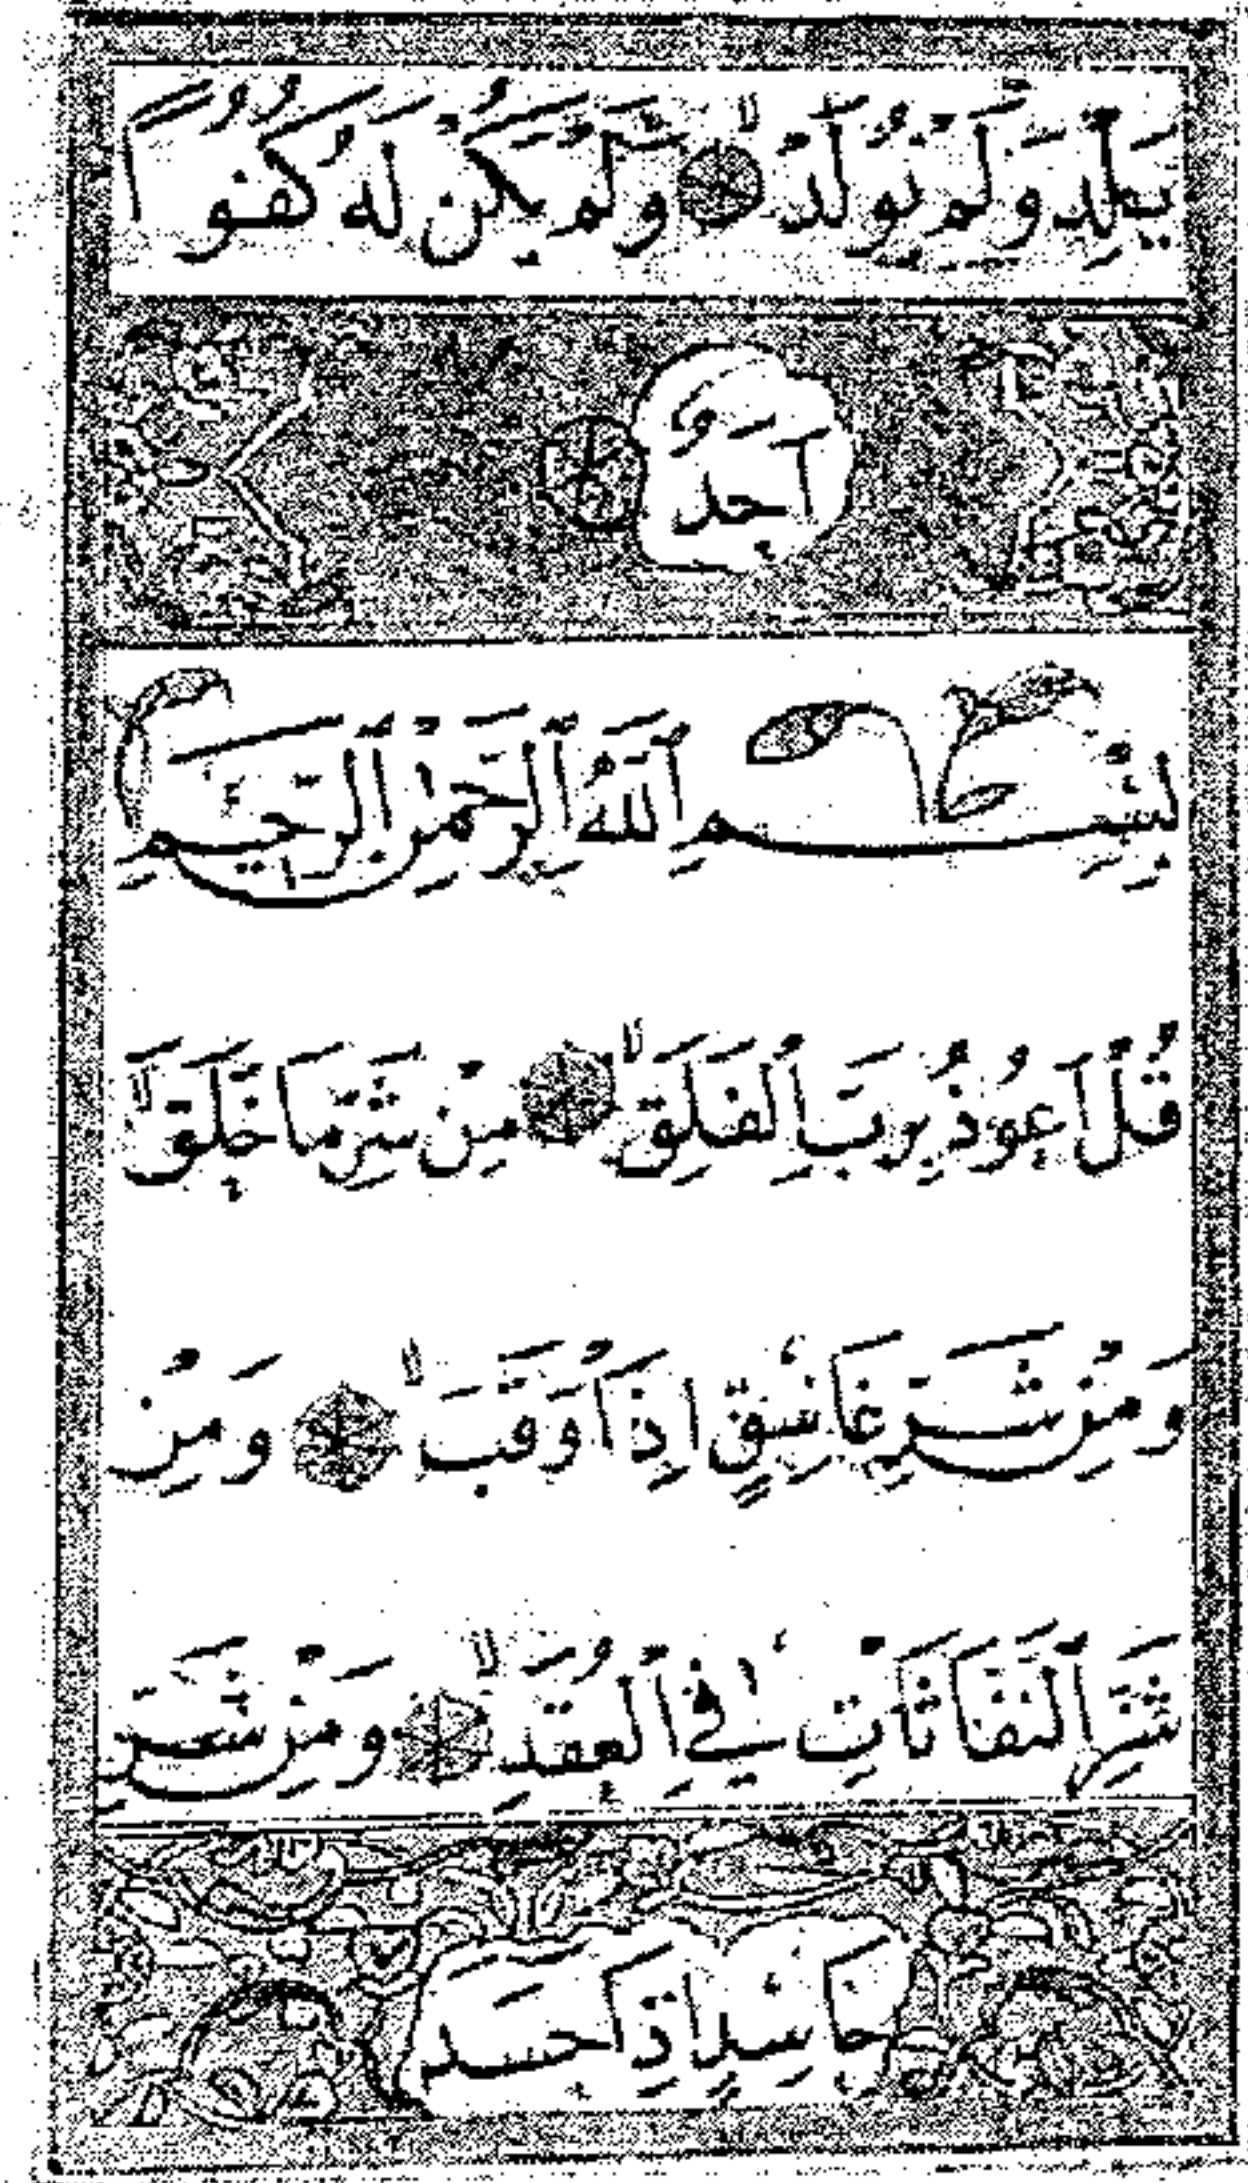 يَلِدْ وَلَمْ يُولَدْ ۙ وَلَمْ يَكُنْ لَهُ كُفُوًا
اَحَدٌ
بِسْمِ اللّٰهِ الرَّحْمٰنِ الرَّحِيمِ
قُلْ اَعُوذُ بِرَبِّ الْفَلَقِ ۙ مِنْ شَرِّ مَا خَلَقَ ۙ
وَمِنْ شَرِّ غَاسِقٍ اِذَا وَقَبَ ۙ وَمِنْ
شَرِّ النَّفَّاثَاتِ فِي الْعُقَدِ ۙ وَمِنْ شَرِّ
حَاسِدٍ اِذَا حَسَدَ